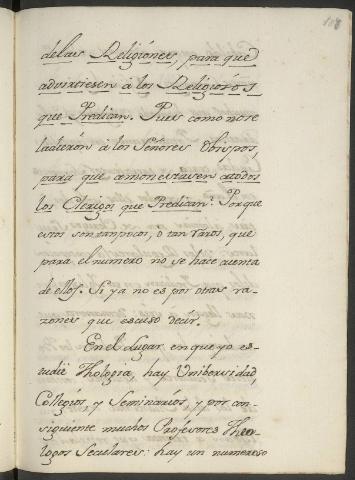 delas Religiónes, para que
advirtiesen à los Religiósos
que Predican. Pues como no se
ladierón à los Señores Obispos,
para que amonestasen atodos
los Clerigos que Predican? Porque
estos son tan pocos, o tan raros, que
para el numero no se hace cuenta
de ellos. Si ya no es por otras ra-
zones que escuso decir.
En el Lugar en que yo es-
tudié Thologia, hay Unibersidad,
Collegios, y Seminarios, y por con-
siguiente muchos Profesores Theo-
logos Seculares: hay un numeroso